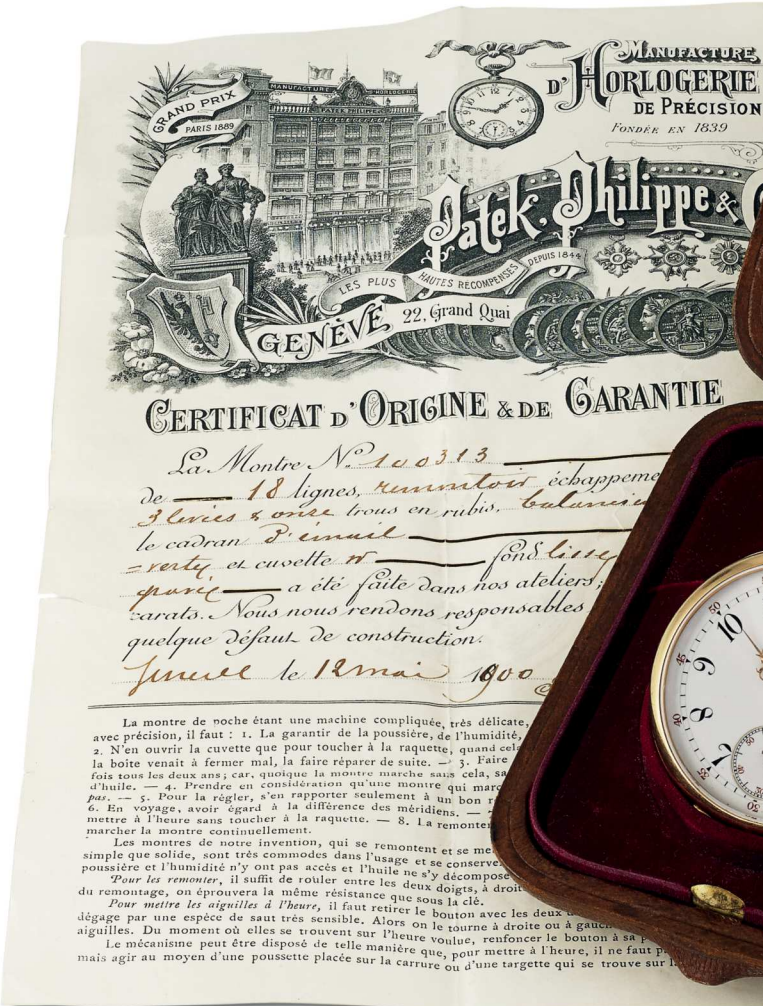 GRAND PRIX
PARIS 1889
MANUFACTURE HORLOGERIE
PATEK PHILIPPE
MANUFACTURE
D'HORLOGERIE
DE PRÉCISION
FONDÉE EN 1839
Patek, Philippe & C
LES PLUS HAUTES RECOMPENSES DEPUIS 1844
GENÈVE 22, Grand Quai
CERTIFICAT D'ORIGINE & DE GARANTIE
La Montre No. 100313
de 18 lignes, remontoir échappeme
3 levées & onze trous en rubis, balancier
le cadran d'émail
et cuvette fond lisse
a été faite dans nos ateliers;
carats. Nous nous rendons responsables
quelque défaut de construction.
le 12 mai 1900
La montre de poche étant une machine compliquée, très délicate,
avec précision, il faut : 1. La garantir de la poussière, de l'humidité,
2. N'en ouvrir la cuvette que pour toucher à la raquette, quand cela
la boîte venait à fermer mal, la faire réparer de suite. — 3. Faire
fois tous les deux ans; car, quoique la montre marche sans cela, sa
d'huile. — 4. Prendre en considération qu'une montre qui marc
pas. — 5. Pour la régler, s'en rapporter seulement à un bon r
6. En voyage, avoir égard à la différence des méridiens. —
mettre à l'heure sans toucher à la raquette. — 8. La remonter
marcher la montre continuellement.
Les montres de notre invention, qui se remontent et se me
simple que solide, sont très commodes dans l'usage et se conserve
poussière et l'humidité n'y ont pas accès et l'huile ne s'y décompose
Pour les remonter, il suffit de rouler entre les deux doigts, à droit
du remontage, on éprouvera la même résistance que sous la clé.
Pour mettre les aiguilles à l'heure, il faut retirer le bouton avec les deux
dégage par une espèce de saut très sensible. Alors on le tourne à droite ou à gauch
aiguilles. Du moment où elles se trouvent sur l'heure voulue, renfoncer le bouton à sa p
Le mécanisme peut être disposé de telle manière que, pour mettre à l'heure, il ne faut p
mais agir au moyen d'une poussette placée sur la carrure ou d'une targette qui se trouve sur l
50
10
45
9
40
8
7
35